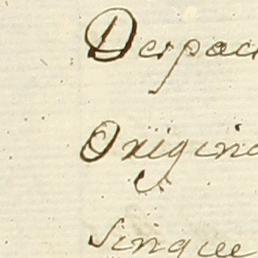 Despac
Origina
Sinque